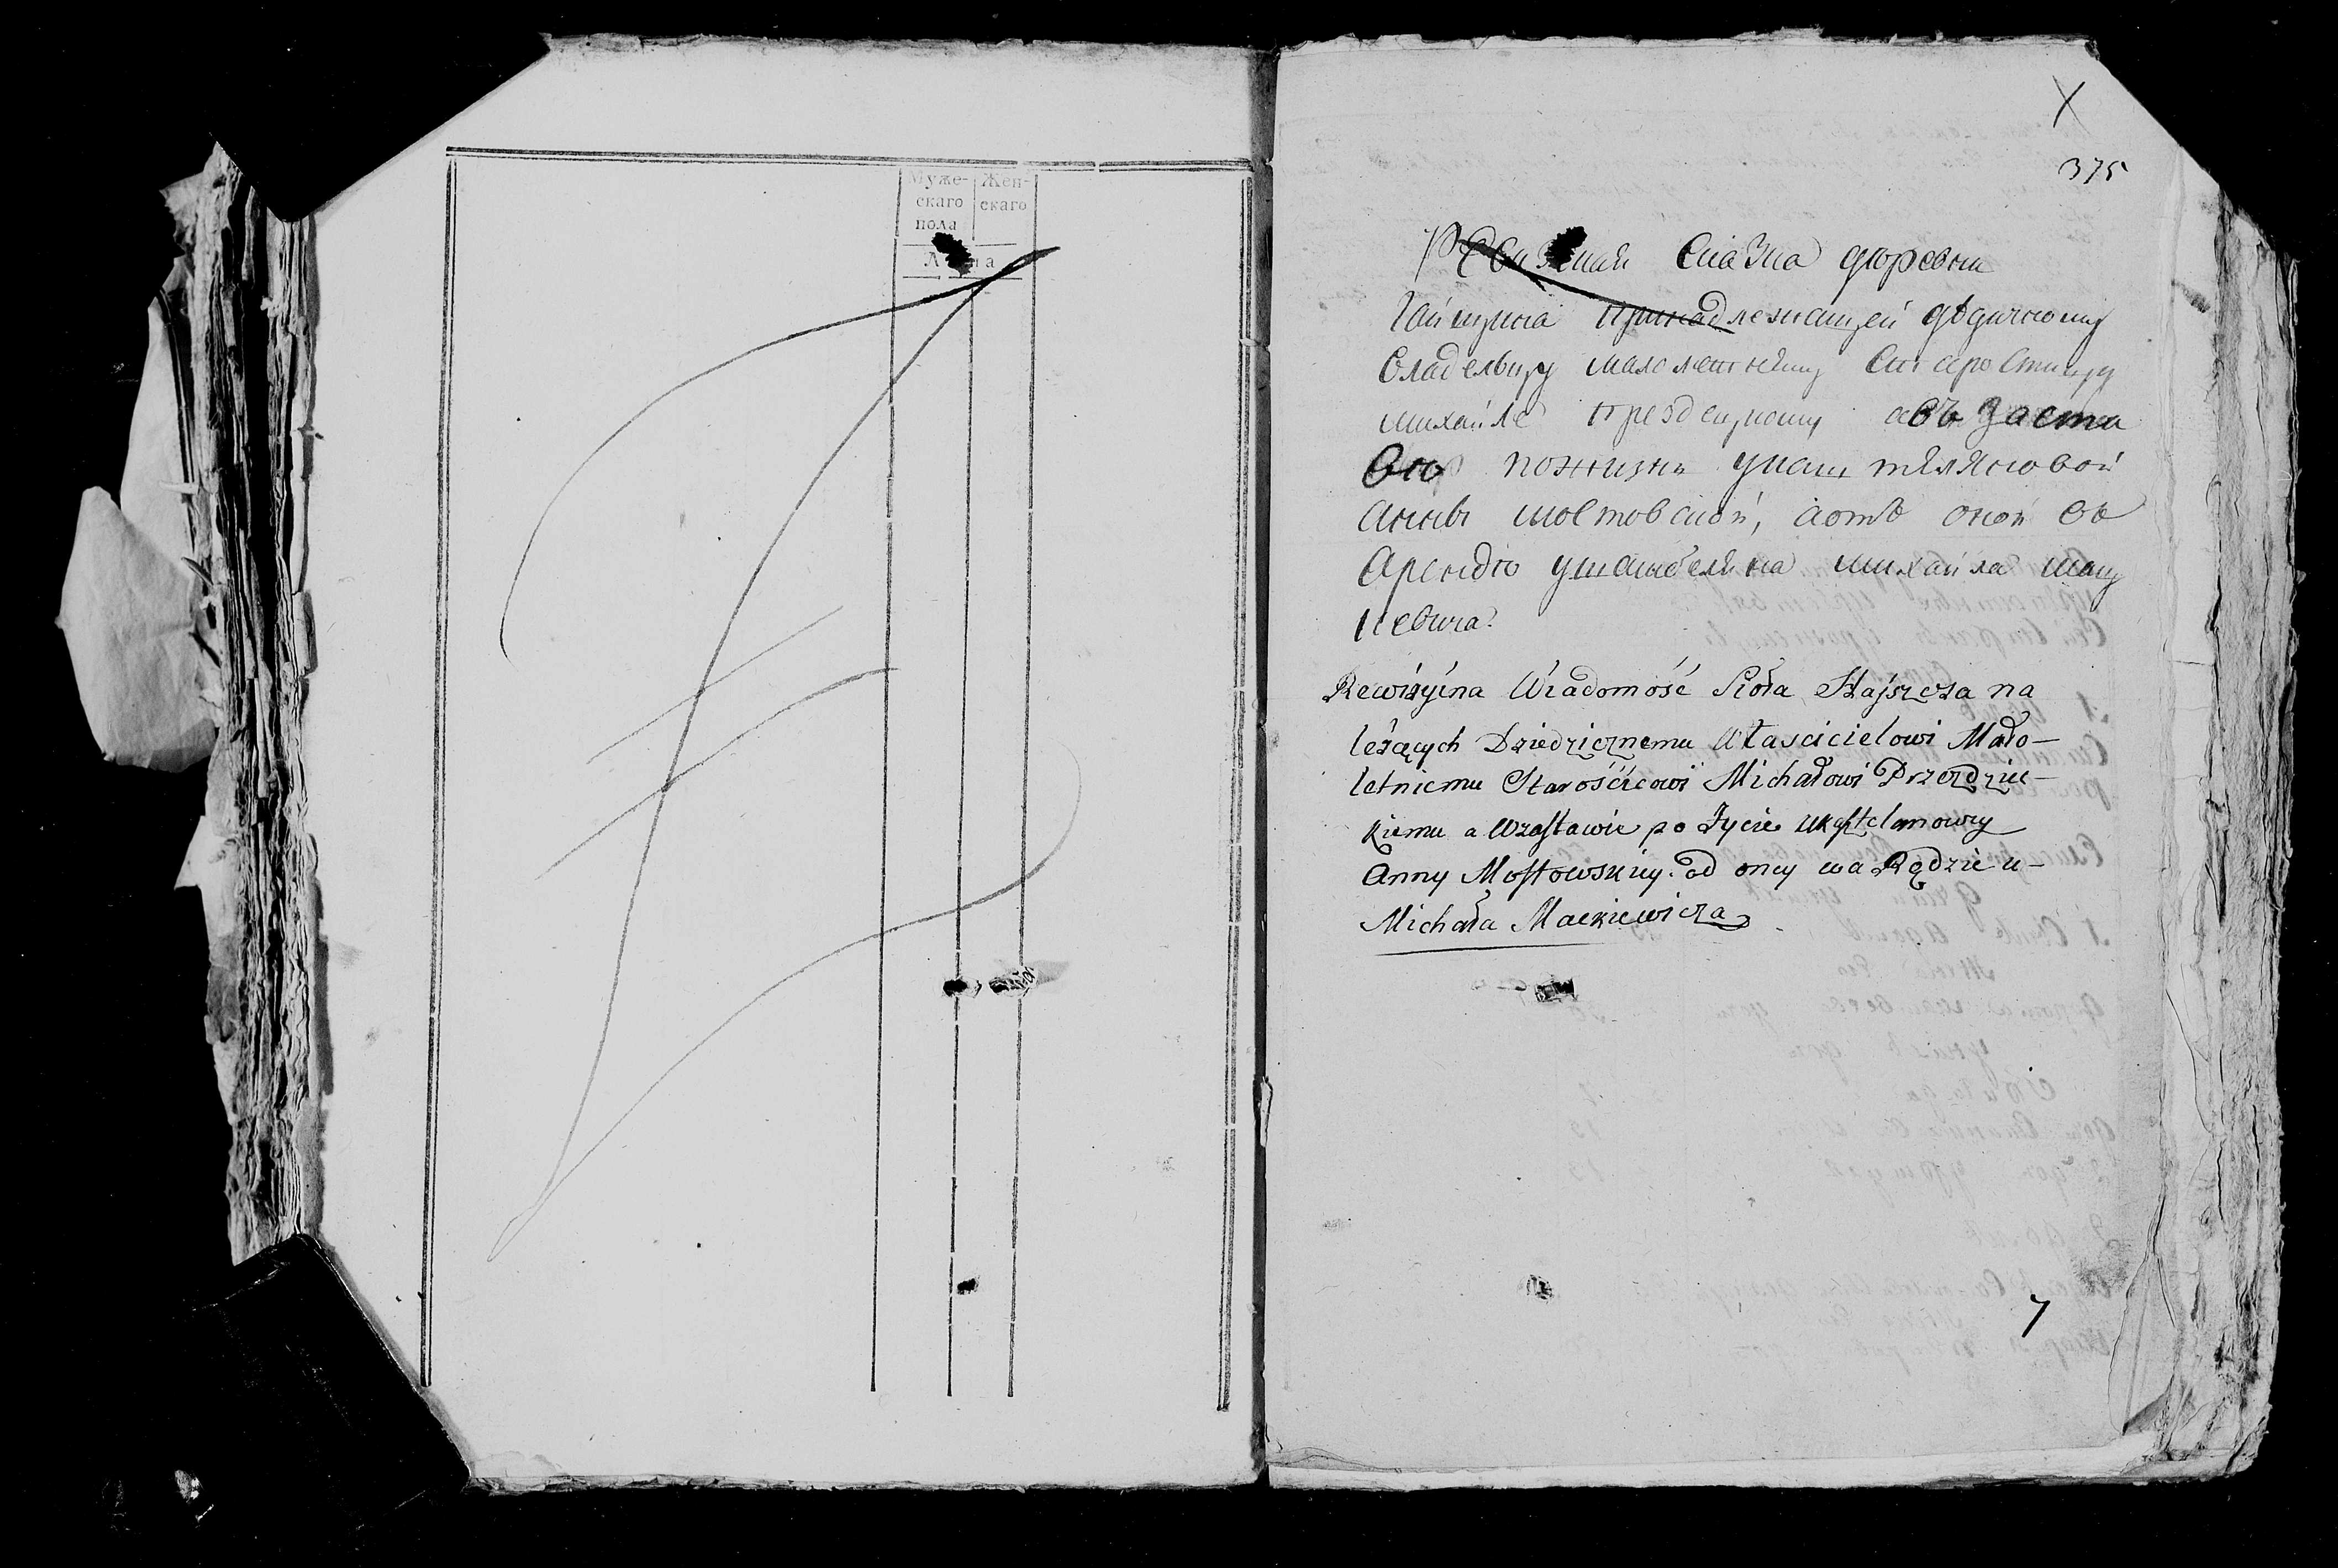 Муже-
скаго
пола
Жен-
скаго
Лѣта
X
375
Сказка деревни
Гайщина принадлежащей дѣдичному
владельцу малолетнему Старостицу
михайле прездецкому а въ заста
вю по жизни у каштеляновой
Анны мостовской, а отъ оной въ
Арендю у шамбеляна михаила мац
кевича.
Rewizyina Wiadomość Sioła Hajszcza na
leżących Dziedzicznemu Włascicielowi Mało-
letniemu Starościcowi Michałowi Przezdziec-
kiemu a Wzastawie po Życie Ukasztelanowey
Anny Mostowskiey. od oney wa Rędzie u-
Michała Mackiewicza
7